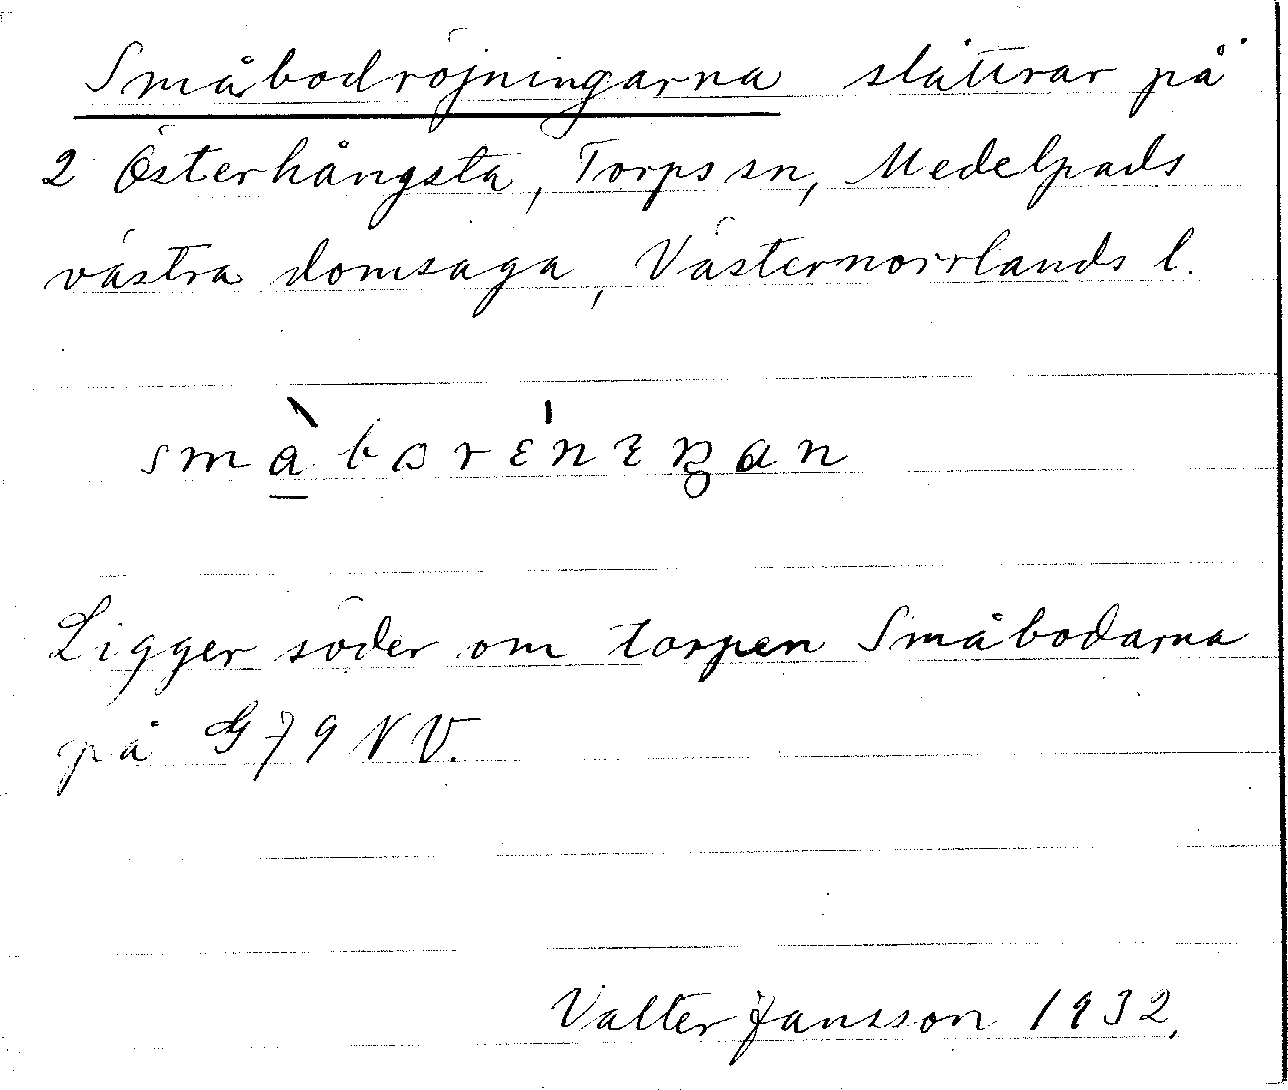 Småbodröjningarna slåttrar på
2 Österhångsta, Torps sn, Medelpads
västra domsaga, Västernorrlands l.
små̀barɛ́nɛŋan
Ligger söder om torpen Småbodarna
på G79 NV.
Valter Jansson 1932.